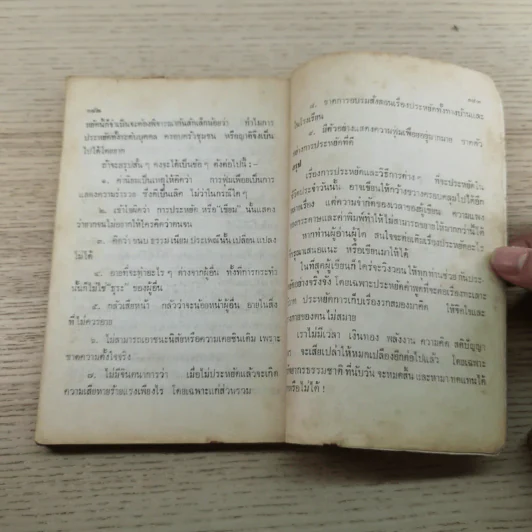 ๑๔๒
หยัดนี้ก็จำเป็นจะต้องพิจารณากันสักเล็กน้อยว่า ทำไมการ
ประหยัดทั้งระดับบุคคล ครอบครัวชุมชน หรือญาติจึงเป็น
ไปได้โดยยาก
ถ้าจะสรุปสั้น ๆ คงจะได้เป็นข้อ ๆ ดังต่อไปนี้ :-
๑. ค่านิยมเป็นเหตุให้คิดว่า การฟุ่มเฟือยเป็นการ
แสดงความร่ำรวย ซึ่งดีเป็นเลิศ ไม่ว่าในกรณีใด ๆ
๒. เข้าใจผิดว่า การประหยัด หรือ "เขียม" นั้นแสดง
ว่ายากจนไม่อยากให้ใครคิดว่าตนจน
๓. คิดว่าขนบธรรมเนียมประเพณีนั้นเปลี่ยนแปลง
ไม่ได้
๔. อายที่จะทำอะไร ๆ ต่างจากผู้อื่น ทั้งที่การกระทำ
นั้นก็ไม่ใช่ "ธุระ" ของผู้อื่น
๕. กลัวเสียหน้า กลัวว่าจะน้อยหน้าผู้อื่น อายในสิ่ง
ที่ไม่ควรอาย
๖. ไม่สามารถเอาชนะนิสัยหรือความเคยชินเดิม เพราะ
ขาดความตั้งใจจริง
๗. ไม่มีจินตนาการว่า เมื่อไม่ประหยัดแล้วจะเกิด
ความเสียหายร้ายแรงเพียงไร โดยเฉพาะแก่ส่วนรวม
๑๔๓
๘. ขาดการอบรมสั่งสอนเรื่องประหยัดทั้งทางบ้านและ
ในโรงเรียน
๙. มีตัวอย่างแสดงความฟุ่มเฟือยอยู่มากมาย ขาดตัว
อย่างการประหยัดที่ดี
สรุป
เรื่องการประหยัดและวิธีการต่าง ๆ ที่จะประหยัดใน
ชีวิตประจำวันนั้น อาจเขียนให้กว้างขวางครอบคลุมไปได้อีก
หลายเรื่อง แต่ความจำกัดของเวลาของผู้เขียน ความแพง
ของกระดาษและค่าพิมพ์ทำให้ไม่สามารถขยายให้มากกว่านี้ได้
หากท่านผู้อ่านผู้ใด สนใจจะต่อเติมเรื่องประหยัดอะไร
กรุณาเสนอแนะ หรือเขียนมาให้ได้
ในที่สุดผู้เขียนก็ใคร่จะวิงวอน ให้ทุกท่านช่วยกันประ-
หยัดอย่างจริงจัง โดยเฉพาะประหยัดคำพูดที่จะก่อเรื่องทะเลาะ
ประหยัดการเก็บเรื่องรกสมองมาคิด ให้จิตใจและ
ของคนไม่สบาย
เราไม่มีเวลา เงินทอง พลังงาน ความคิด สติปัญญา
จะเสียเปล่าให้หมดเปลืองอีกต่อไปแล้ว โดยเฉพาะ
ทรัพยากรธรรมชาติที่นับวัน จะหมดสิ้น และหามาทดแทนได้
หรือไม่ได้ !